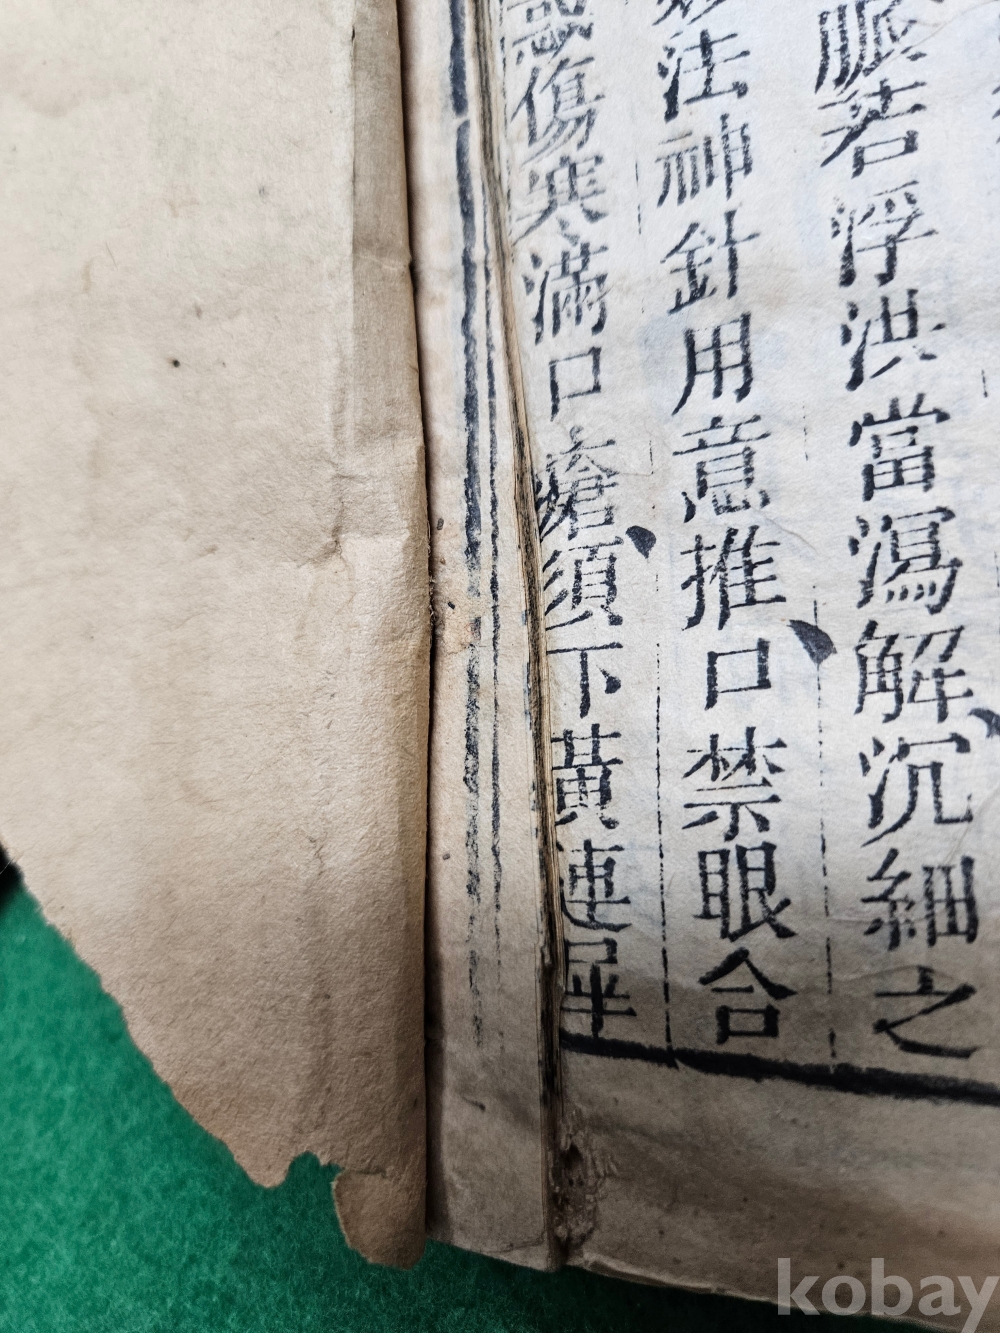 脈若浮洪當瀉解、沉細之
法神針用意推、口禁眼合
傷寒滿口瘡、須下黃連犀
kobay